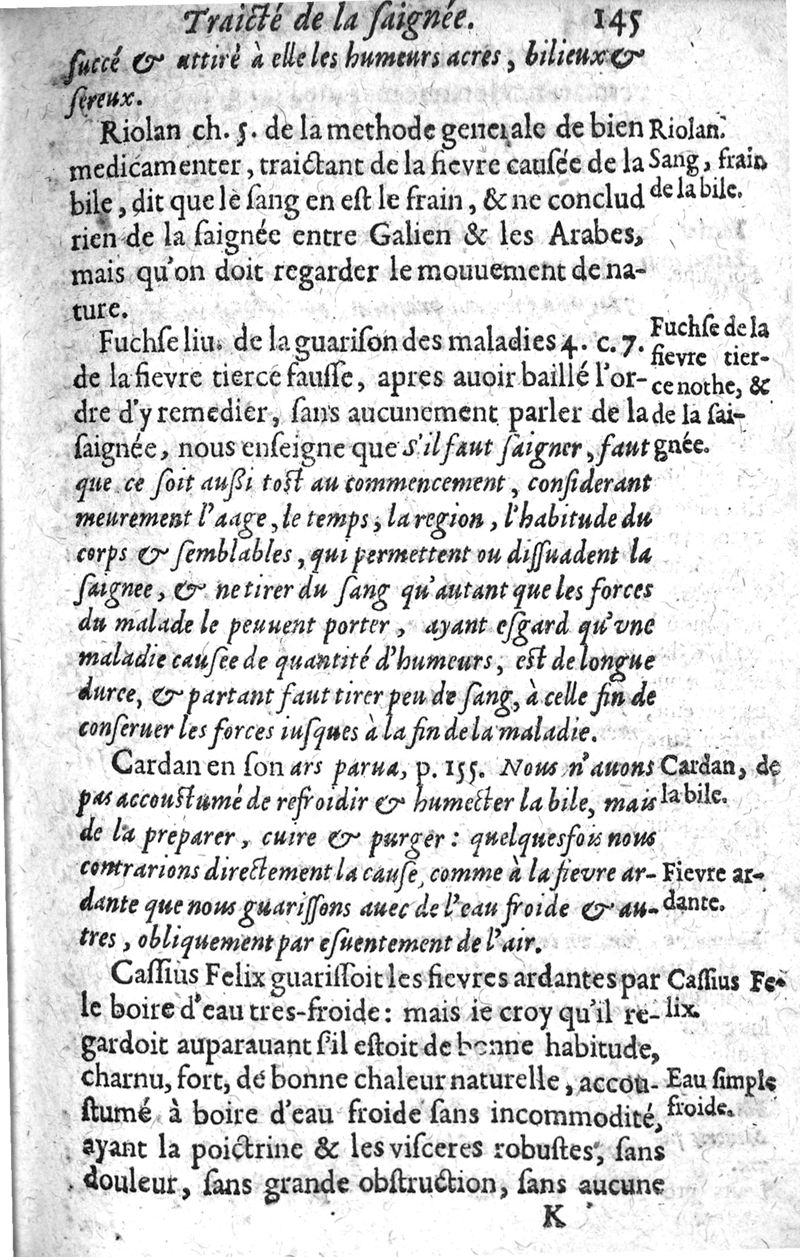 Traicté de la ſaignée. 145
ſuccé & attiré à elle les humeurs acres, bilieux &
ſereux.
Riolan ch. 5. de la methode generale de bien
medicamenter, traictant de la fievre cauſée de la
bile, dit que le ſang en eſt le frain, & ne conclud
rien de la ſaignée entre Galien & les Arabes,
mais qu'on doit regarder le mouuement de na-
ture.
Riolan.
Sang, frain
de la bile.
Fuchſe liu. de la guariſon des maladies 4. c. 7.
de la fievre tierce fauſſe, apres auoir baillé l'or-
dre d'y remedier, ſans aucunement parler de la
ſaignée, nous enſeigne que s'il faut ſaigner, faut
que ce ſoit auſſi toſt au commencement, conſiderant
meurement l'aage, le temps, la region, l'habitude du
corps & ſemblables, qui permettent ou diſſuadent la
ſaignee, & ne tirer du ſang qu'autant que les forces
du malade le peuuent porter, ayant eſgard qu'vne
maladie cauſee de quantité d'humeurs, eſt de longue
duree, & partant faut tirer peu de ſang, à celle fin de
conſeruer les forces iuſques à la fin de la maladie.
Fuchſe de la
fievre tier-
ce nothe, &
de la ſai-
gnée.
Cardan en ſon ars parua, p. 155. Nous n'auons
pas accouſtumé de refroidir & humecter la bile, mais
de la preparer, cuire & purger: quelquesfois nous
contrarions directement la cauſe, comme à la fievre ar-
dante que nous guariſſons auec de l'eau froide & au-
tres, obliquement par eſuentement de l'air.
Cardan, de
la bile.
Fievre ar-
dante.
Caſſius Felix guariſſoit les fievres ardantes par
le boire d'eau tres-froide: mais ie croy qu'il re-
gardoit auparauant ſ'il eſtoit de bonne habitude,
charnu, fort, de bonne chaleur naturelle, accou-
ſtumé à boire d'eau froide ſans incommodité,
ayant la poictrine & les viſceres robuſtes, ſans
douleur, ſans grande obſtruction, ſans aucune
Caſſius Fe-
lix.
Eau ſimple
froide.
K